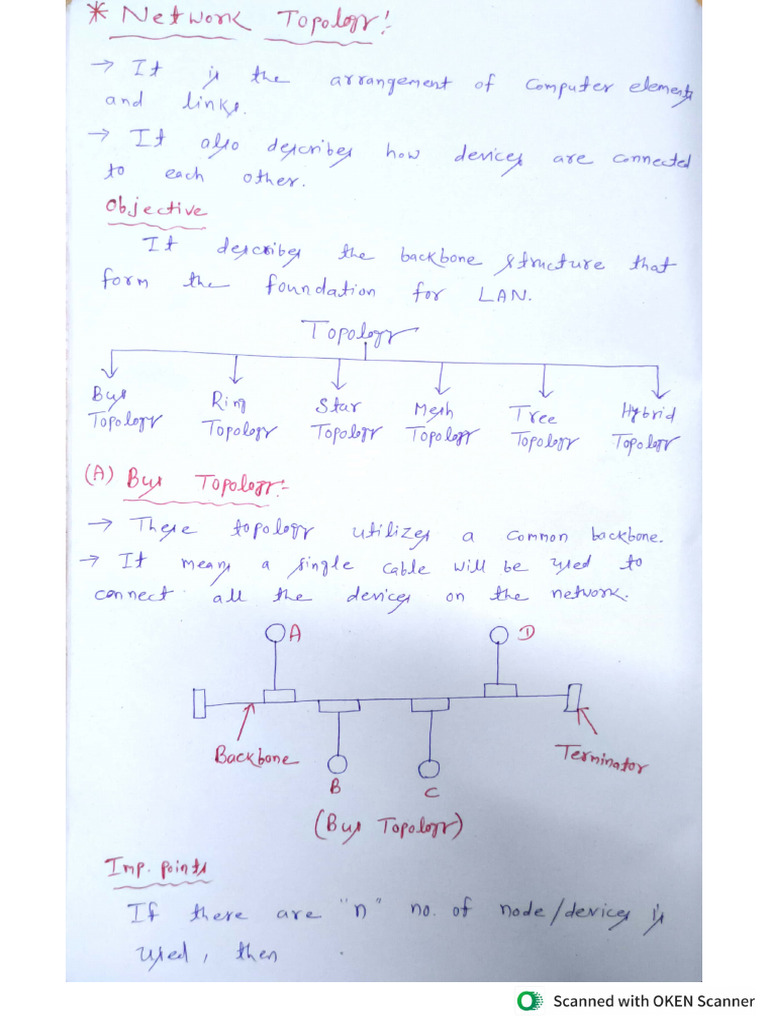 * Network Topology:
→ It is the arrangement of computer elements
and links.
→ It also describes how devices are connected
to each other.
Objective
It describes the backbone structure that
form the foundation for LAN.
Topology
Bus Topology
Ring Topology
Star Topology
Mesh Topology
Tree Topology
Hybrid Topology
(A) Bus Topology:-
→ These topology utilizes a common backbone.
→ It means a single cable will be used to
connect all the devices on the network.
A
D
Backbone
Terminator
B
C
(Bus Topology)
Imp. points
If there are "n" no. of node/devices is
used, then
Scanned with OKEN Scanner